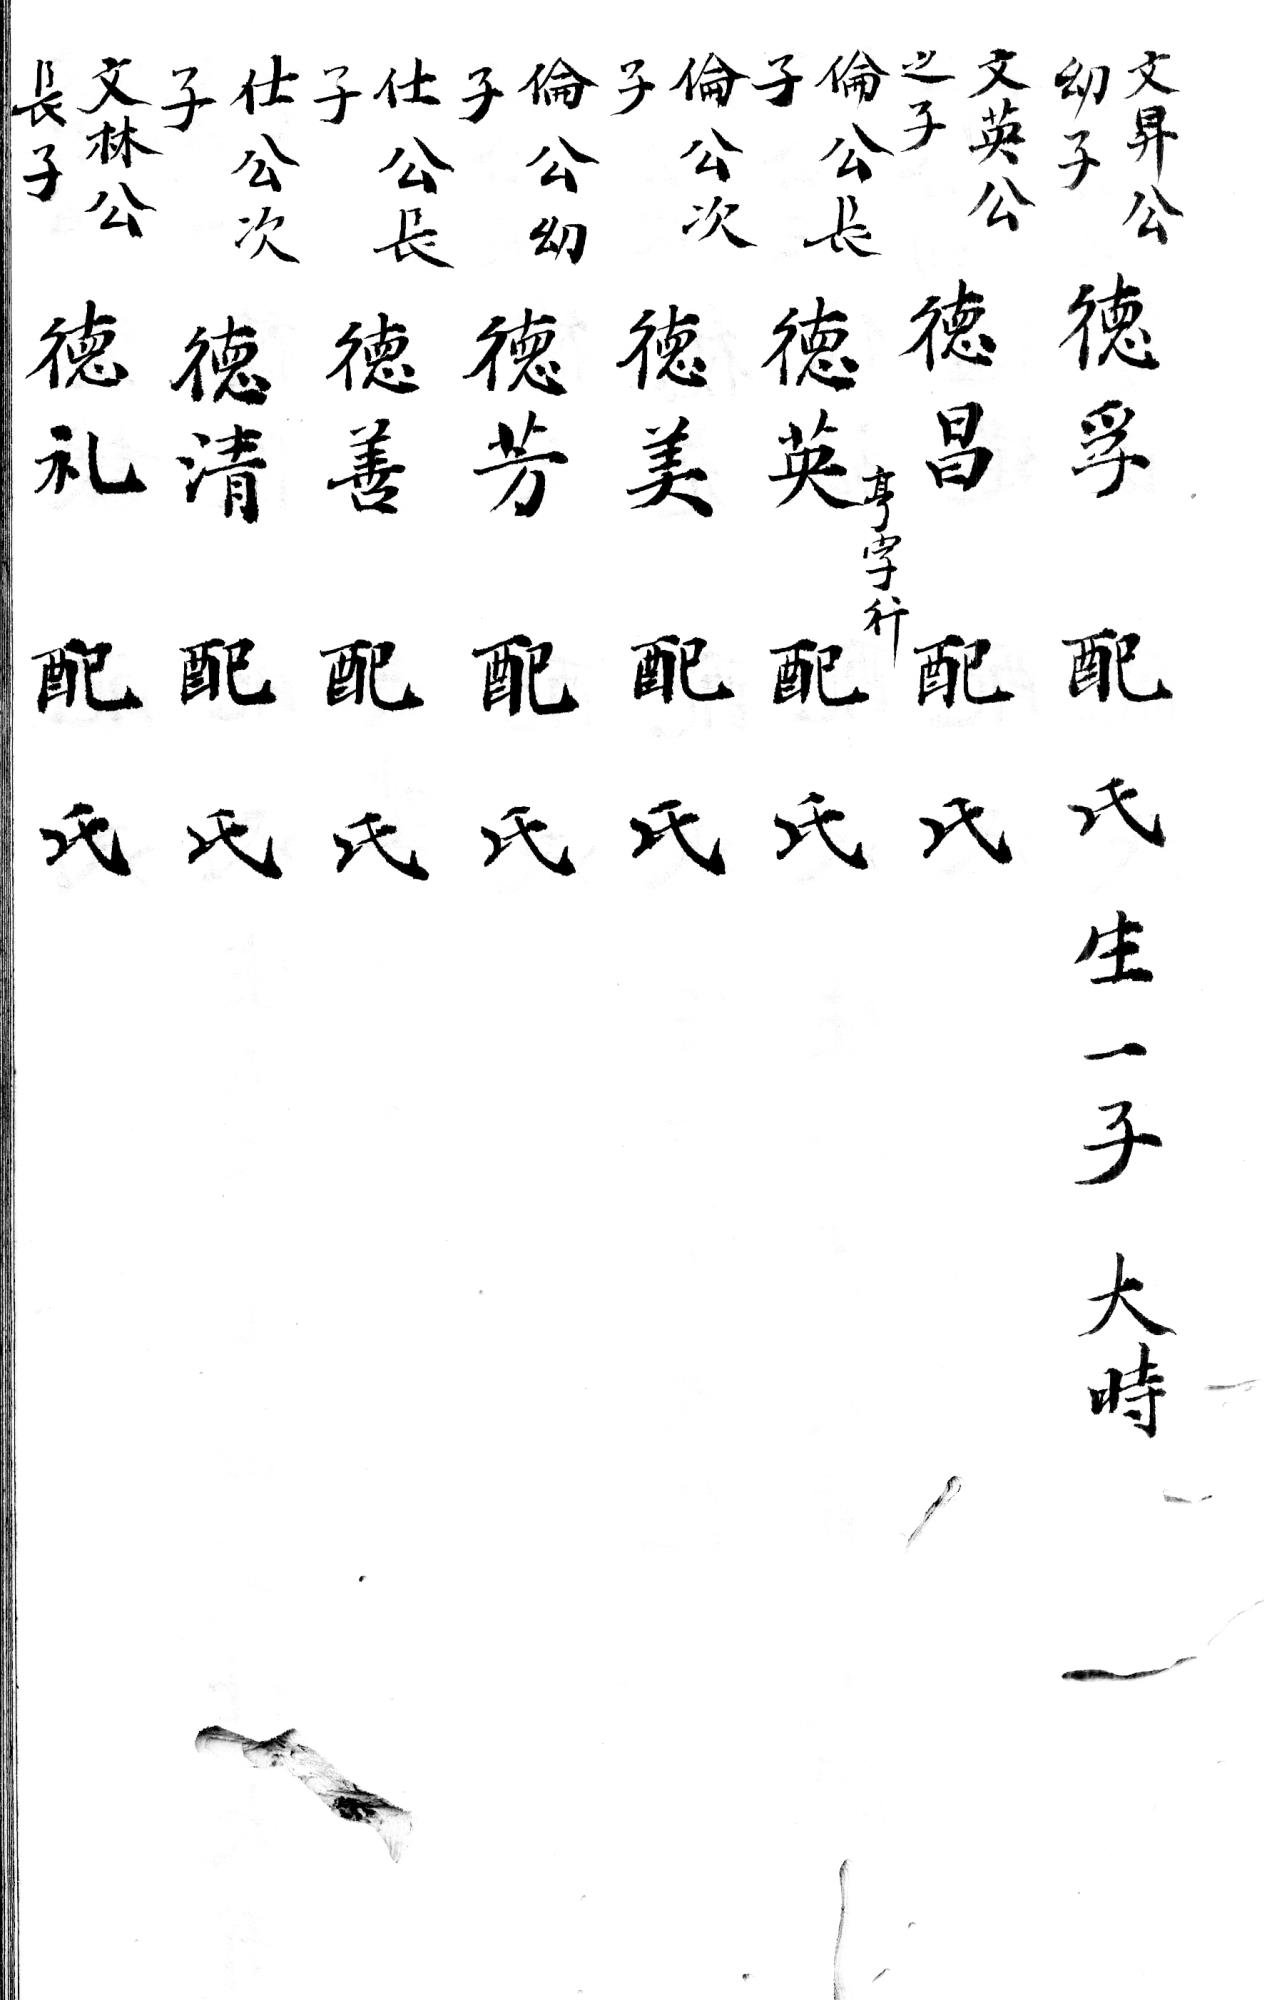 文昇公幼子 德孚 配 氏 生一子 大時
文英公之子 德昌 配 氏
亨字行
倫公長子 德英 配 氏
倫公次子 德美 配 氏
倫公幼子 德芳 配 氏
仕公長子 德善 配 氏
仕公次子 德清 配 氏
文林公長子 德礼 配 氏